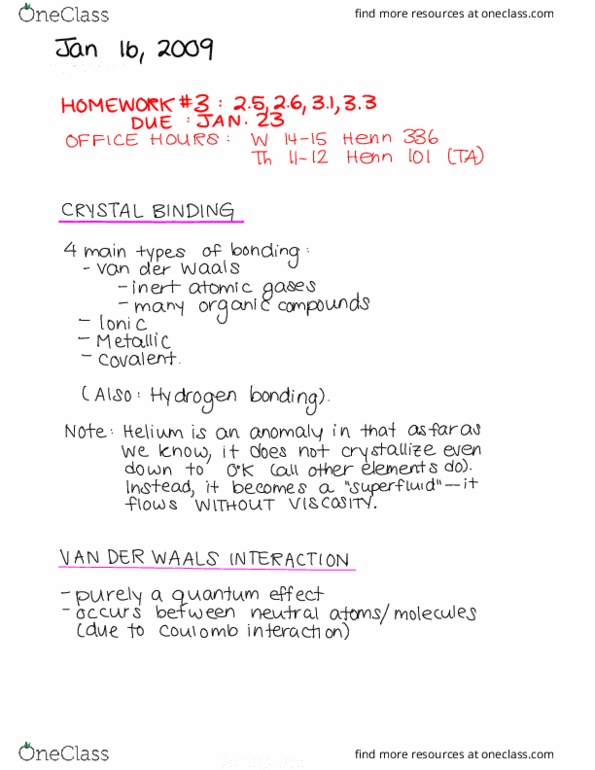 OneClass
find more resources at oneclass.com
Jan 16, 2009
HOMEWORK #3 : 2.5, 2.6, 3.1, 3.3
DUE : JAN. 23
OFFICE HOURS : W 14-15 Henn 336
Th 11-12 Henn 101 (TA)
CRYSTAL BINDING
4 main types of bonding:
- van der Waals
- inert atomic gases
- many organic compounds
- Ionic
- Metallic
- covalent.
(Also: Hydrogen bonding).
Note: Helium is an anomaly in that as far as
we know, it does not crystallize even
down to 0°K (all other elements do).
Instead, it becomes a "superfluid" — it
flows WITHOUT VISCOSITY.
VAN DER WAALS INTERACTION
- purely a quantum effect
- occurs between neutral atoms/molecules
(due to Coulomb interaction)
OneClass
find more resources at oneclass.com